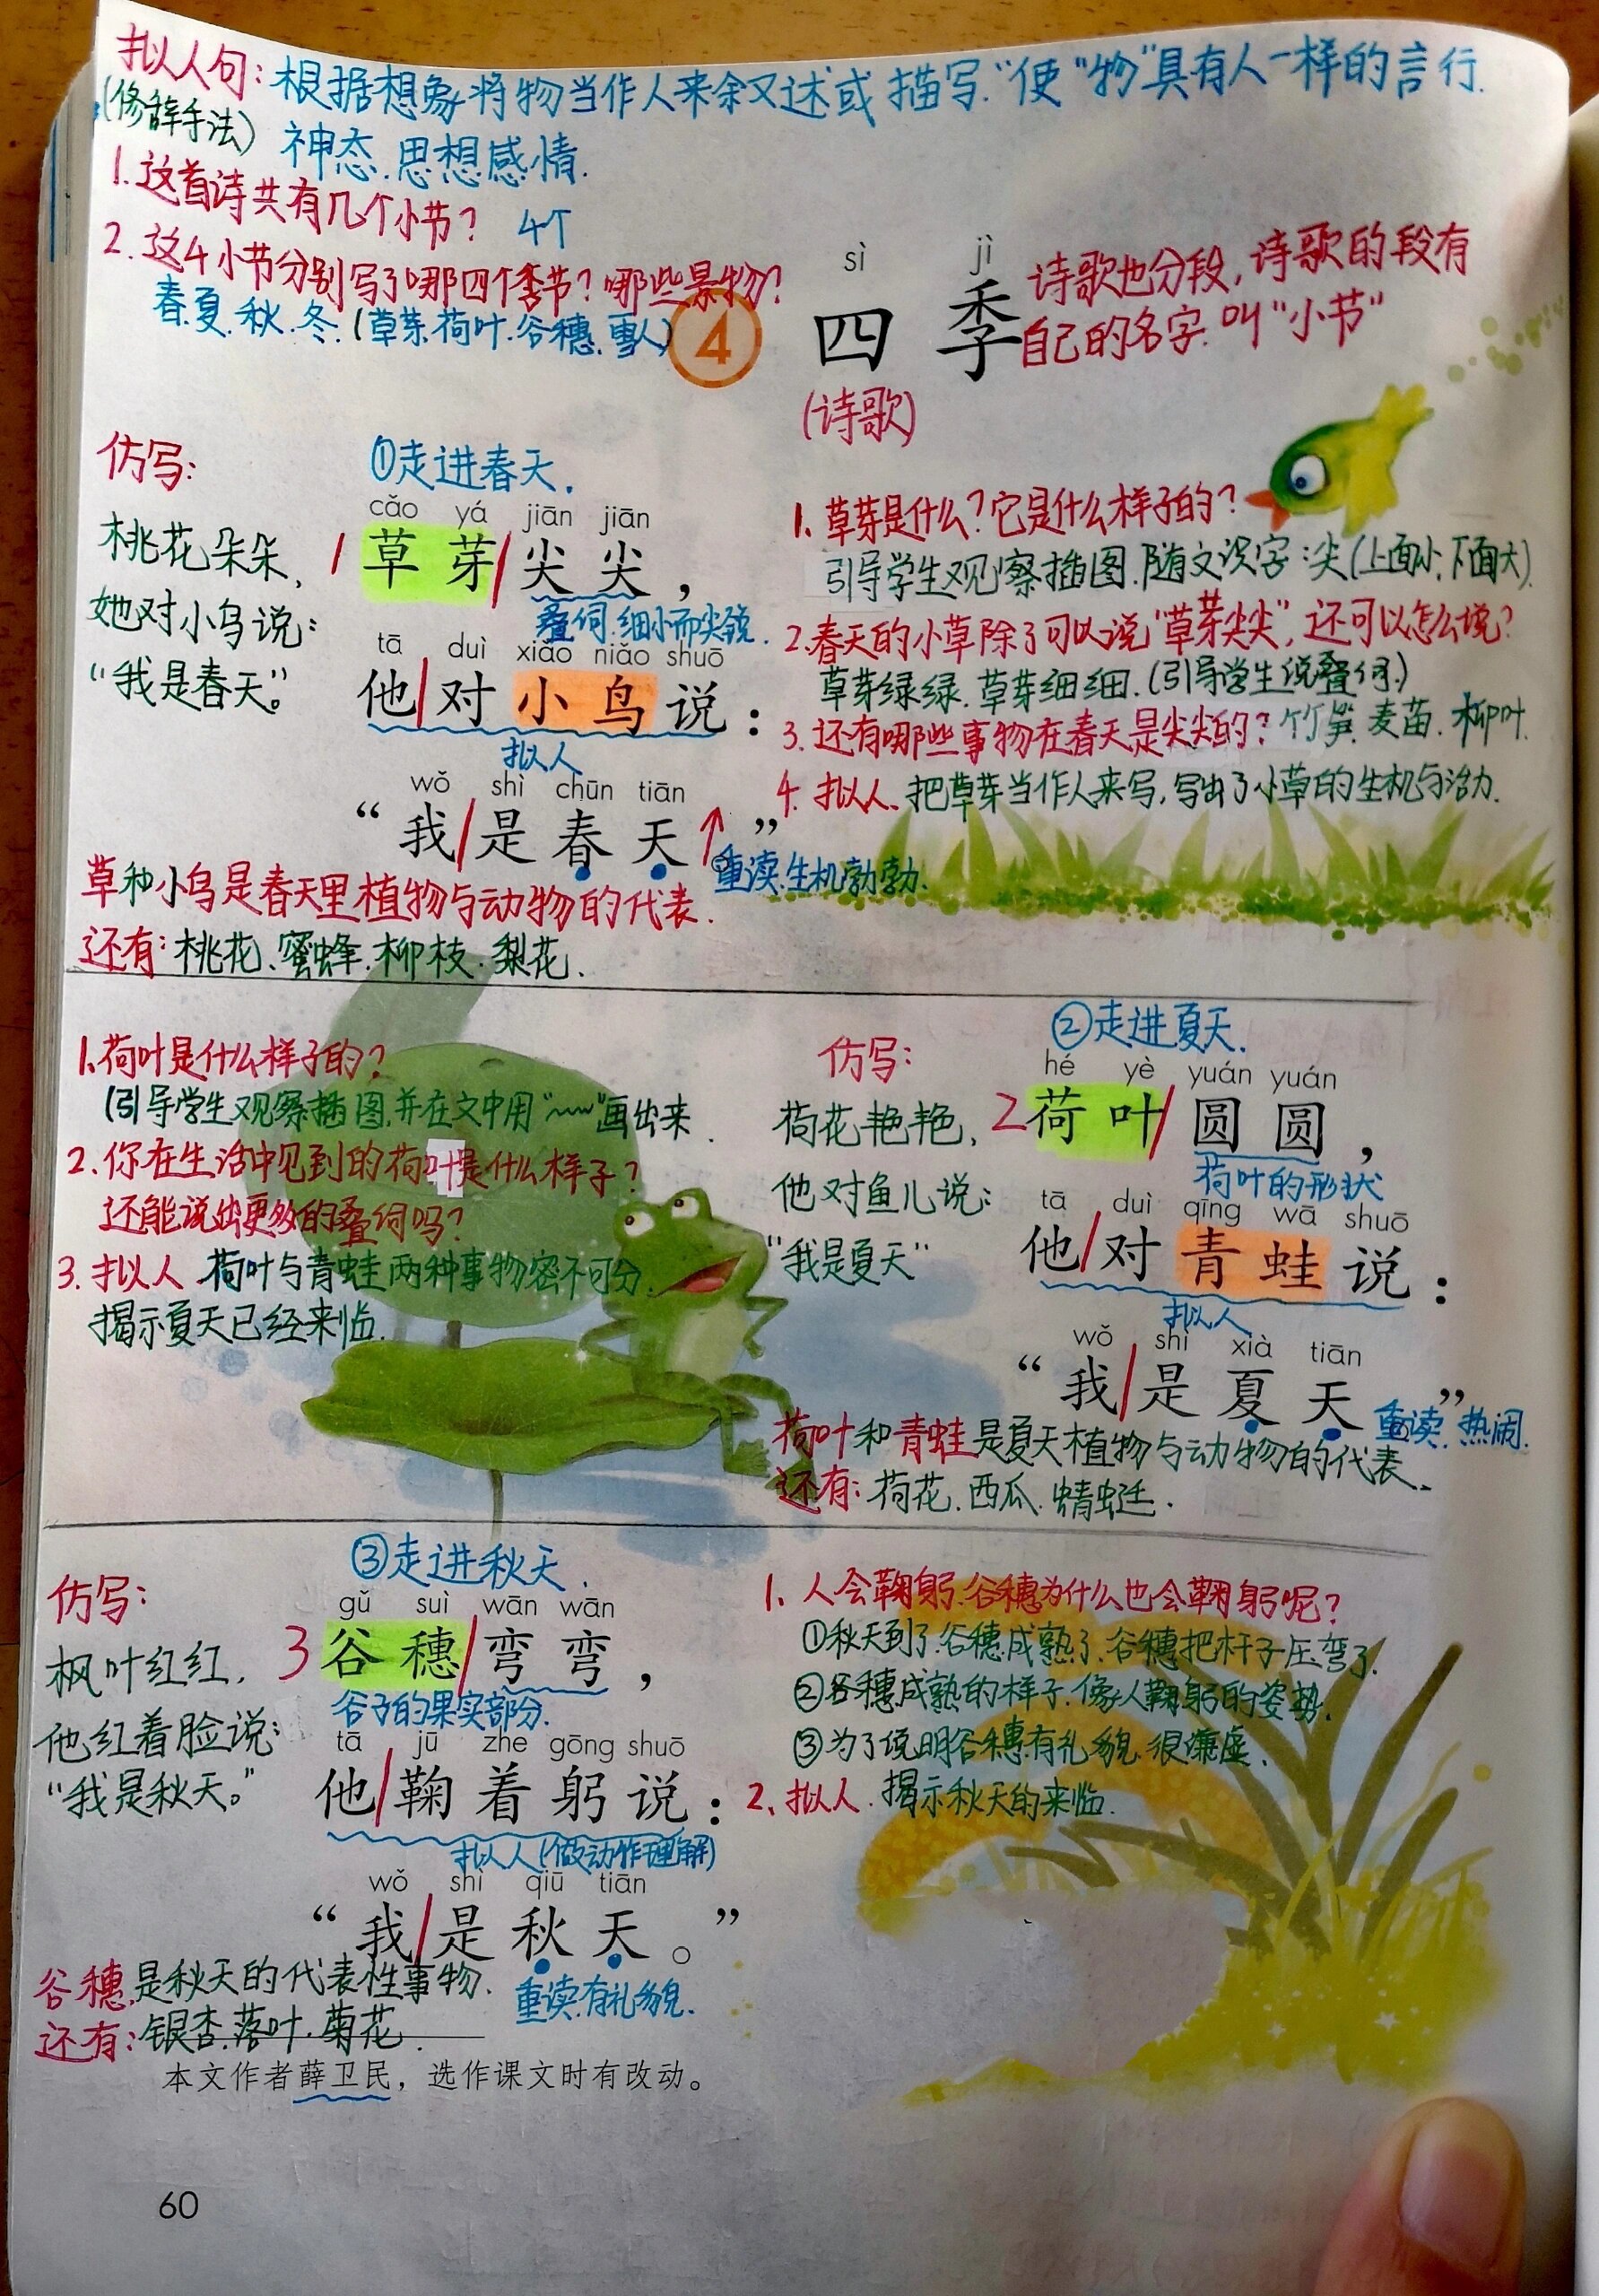 拟人句：根据想象将物当作人来叙述或描写."使"物"具有人一样的言行.
(修辞手法) 神态.思想感情.
1.这首诗共有几个小节？ 4个
2.这4小节分别写了哪四个季节？哪些景物？
春.夏.秋.冬.(草芽.荷叶.谷穗.雪人)
4
sì jì
四季
诗歌也分段,诗歌的段有
自己的名字.叫"小节"
(诗歌)
仿写：
桃花朵朵，
她对小鸟说：
"我是春天。"
①走进春天.
cǎo yá jiān jiān
1 草芽尖尖，
叠词.细小而尖锐.
tā duì xiǎo niǎo shuō
他对小鸟说：
拟人
wǒ shì chūn tiān
"我是春天"
重读.生机勃勃.
1.草芽是什么？它是什么样子的？
引导学生观察插图.随文识字：尖(上面小,下面大).
2.春天的小草除了可以说"草芽尖尖",还可以怎么说？
草芽绿绿.草芽细细.(引导学生说叠词.)
3.还有哪些事物在春天是尖尖的？竹笋.麦苗.柳叶.
4.拟人、把草芽当作人来写,写出了小草的生机与活力.
草和小鸟是春天里植物与动物的代表.
还有：桃花、蜜蜂.柳枝.梨花.
1.荷叶是什么样子的？
(引导学生观察插图,并在文中用"﹏﹏"画出来.
2.你在生活中见到的荷叶是什么样子？
还能说出更多的叠词吗？
3.拟人 荷叶与青蛙两种事物密不可分.
揭示夏天已经来临.
仿写：
荷花艳艳，
他对鱼儿说：
"我是夏天"
②走进夏天.
hé yè yuán yuán
2荷叶圆圆，
荷叶的形状
tā duì qīng wā shuō
他对青蛙说：
拟人
wǒ shì xià tiān
"我是夏天"
重读.热闹.
荷叶和青蛙是夏天植物与动物的代表.
还有：荷花.西瓜.蜻蜓.
仿写：
枫叶红红，
他红着脸说：
"我是秋天。"
③走进秋天.
gǔ suì wān wān
3谷穗弯弯，
谷子的果实部分.
tā jū zhe gōng shuō
他鞠着躬说：
拟人(做动作理解)
wǒ shì qiū tiān
"我是秋天。"
重读.有礼貌.
1.人会鞠躬.谷穗为什么也会鞠躬呢？
①秋天到了.谷穗成熟了.谷穗把杆子压弯了.
②谷穗成熟的样子.像人鞠躬的姿势.
③为了说明谷穗有礼貌.很谦虚.
2、拟人.揭示秋天的来临.
谷穗是秋天的代表性事物.
还有：银杏.落叶.菊花.
本文作者薛卫民，选作课文时有改动。
60